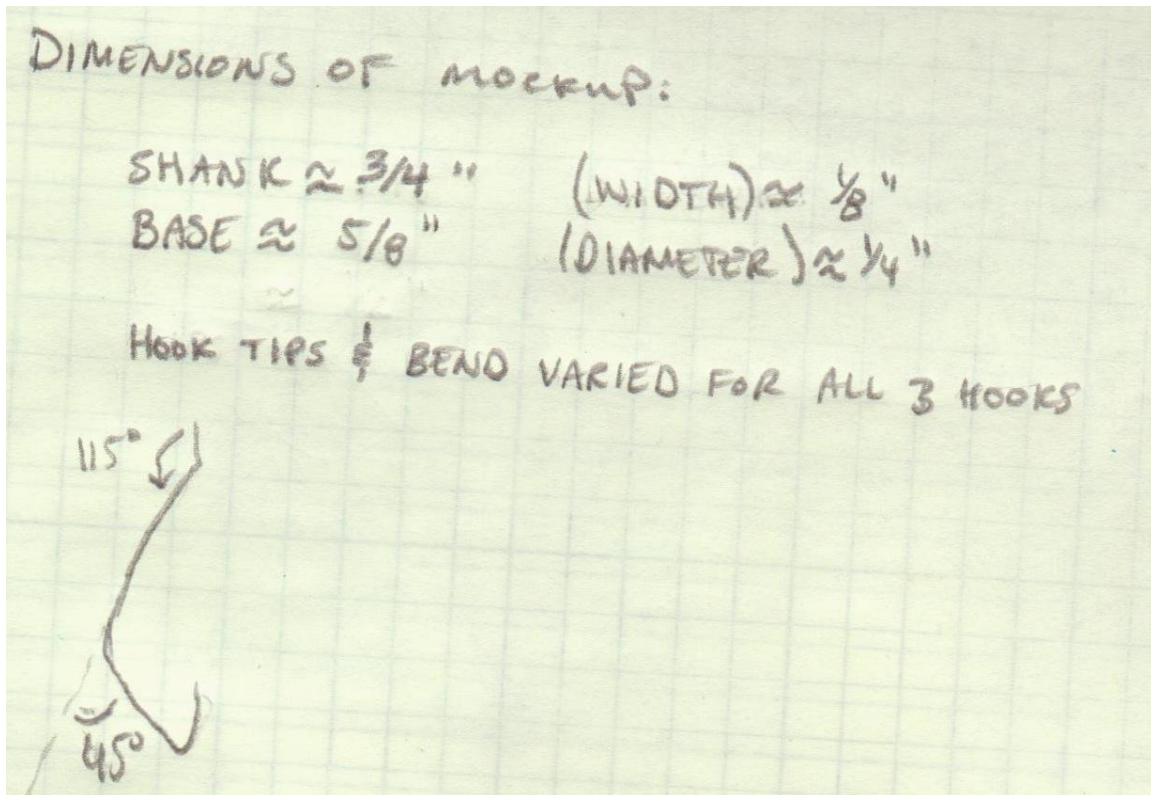 DIMENSIONS OF MOCKUP:
SHANK ≈ 3/4" (WIDTH) ≈ 1/8"
BASE ≈ 5/8" (DIAMETER) ≈ 1/4"
HOOK TIPS & BEND VARIED FOR ALL 3 HOOKS
115°
45°